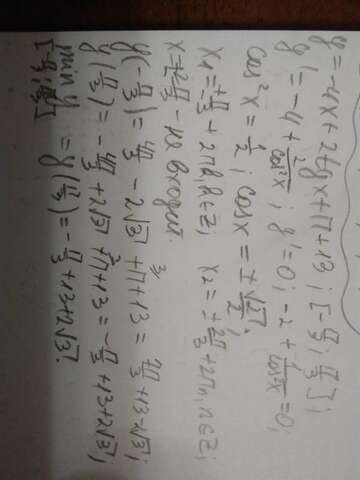 y=-4x+2tgx+π+13; [-π/3; π/3];
y'=-4+2/cos²x; y'=0; -2+1/cos²x=0;
cos²x=1/2; cosx=±√2/2;
x₁=±π/3+2πk, k∈Z; x₂=±2π/3+2πn, n∈Z;
x=±2π/3 - не входит.
y(-π/3)=4π/3-2√3+π+13=7π/3+13-2√3;
y(π/3)=-4π/3+2√3+π+13=-π/3+13+2√3;
min y = y(π/3)=-π/3+13+2√3.
[-π/3; π/3]